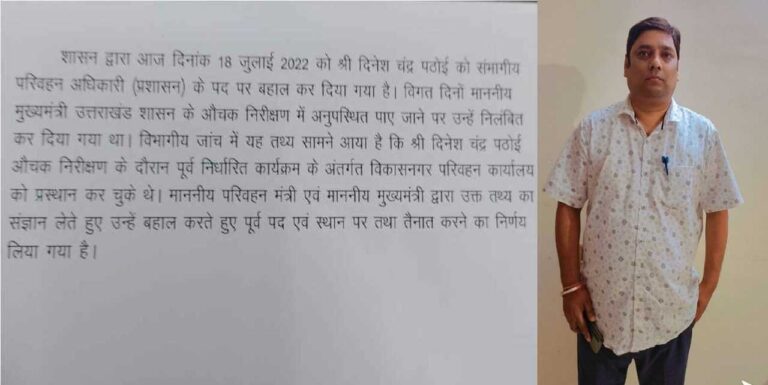 शासन द्वारा आज दिनांक 18 जुलाई 2022 को श्री दिनेश चंद्र पठोई को संभागीय
परिवहन अधिकारी (प्रशासन) के पद पर बहाल कर दिया गया है। विगत दिनों माननीय
मुख्यमंत्री उत्तराखंड शासन के औचक निरीक्षण में अनुपस्थित पाए जाने पर उन्हें निलंबित
कर दिया गया था। विभागीय जांच में यह तथ्य सामने आया है कि श्री दिनेश चंद्र पठोई
औचक निरीक्षण के दौरान पूर्व निर्धारित कार्यक्रम के अंतर्गत विकासनगर परिवहन कार्यालय
को प्रस्थान कर चुके थे। माननीय परिवहन मंत्री एवं माननीय मुख्यमंत्री द्वारा उक्त तथ्य का
संज्ञान लेते हुए उन्हें बहाल करते हुए पूर्व पद एवं स्थान पर तथा तैनात करने का निर्णय
लिया गया है।